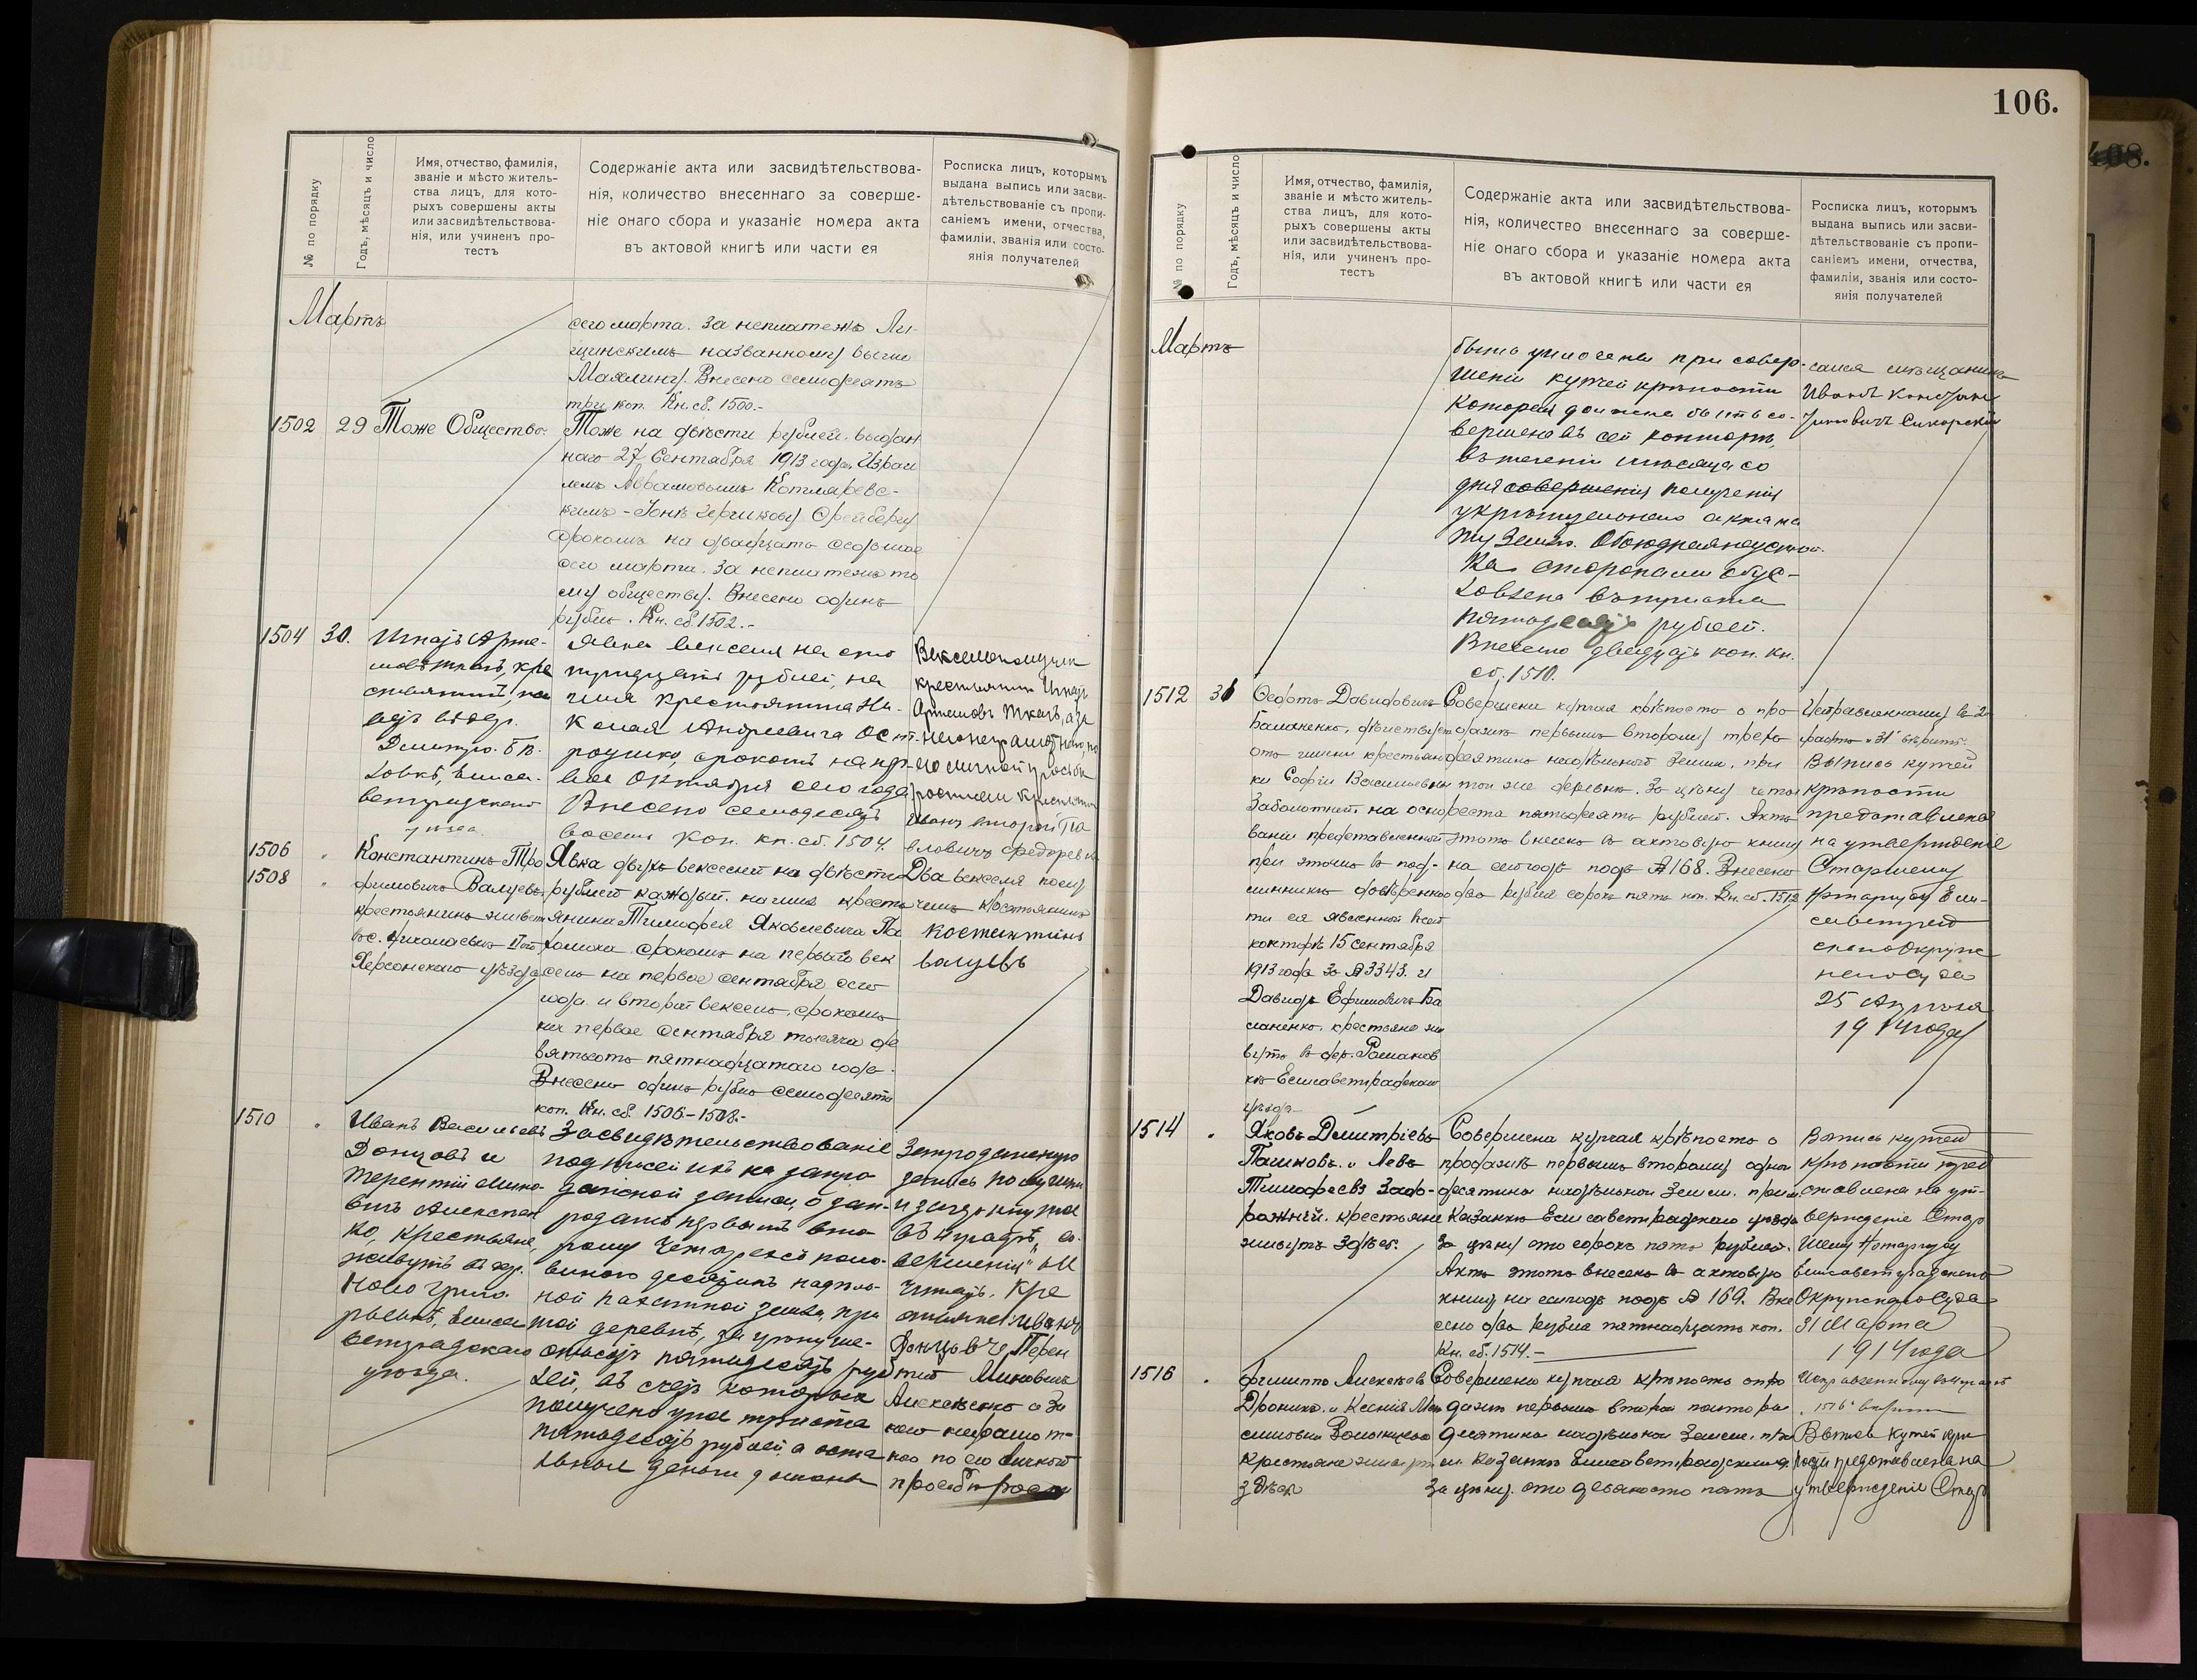 106.
№ по порядку
Годъ, мѣсяцъ и число
Имя, отчество, фамилія,
званіе и мѣсто житель-
ства лицъ, для кото-
рыхъ совершены акты
или засвидѣтельствова-
нія, или учиненъ про-
тестъ
Содержаніе акта или засвидѣтельствова-
нія, количество внесеннаго за соверше-
ніе онаго сбора и указаніе номера акта
въ актовой книгѣ или части ея
Росписка лицъ, которымъ
выдана выпись или засви-
дѣтельствованіе съ пропи-
саніемъ имени, отчества,
фамиліи, званія или состо-
янія получателей
Мартъ
сего марта. За неплатежъ Ли-
щинскимъ названному выше
Внесено семьдесятъ
три коп. Кн. сб. 1500.-
1502
29
Тоже Общество.
Тоже на двѣсти рублей, выдан
наго 27 Сентября 1913 года, Израи
лемъ Абрамовымъ Котляревс-
кимъ
срокомъ на двадцать седьмое
сего марта. За неплатежъ то
му обществу. Внесено одинъ
рубль. Кн. сб. 1502.-
1504
30.
Игнатъ Арте-
мовъ Ткачъ, кре
стьянинъ,
Дмитро-
Елиса-
ветградскаго
уѣзда
Явка векселя на сто
тридцать рублей, на
имя крестьянина Ни-
колая Андреевича
срокомъ на
Октября сего года
Внесено семьдесятъ
восемь коп. кн. сб. 1504.
Вексель получилъ
крестьянинъ Игнатъ
Артемовъ Ткачъ, а за
него неграмотнаго по
его личной просьбѣ
росписался крестьянинъ
Иванъ второй Па
вловичъ
1506
1508
Константинъ Тро
фимовичъ Валуевъ,
крестьянинъ живетъ
въ с. Николаевкѣ
Херсонскаго уѣзда
Явка двухъ векселей на двѣсти
рублей каждый. на имя кресть
янина Тимофея Яковлевича
срокомъ на первый век
сель на первое сентября сего
года и второй вексель, срокомъ
на первое сентября тысяча де
вятьсотъ пятнадцатаго года.
Внесено одинъ рубль семьдесятъ
коп. Кн. сб. 1506-1508.-
Два векселя полу
чилъ крестьянинъ
Костентинъ
валуевъ
1510
Иванъ Васильевъ
Донцовъ и
Терентій Мино-
вичъ Алексеен
ко, крестьяне,
живутъ въ дер.
Ново Григо-
рьевкѣ, Елиса
ветградскаго
уѣзда.
Засвидѣтельствованіе
подписей ихъ на запро
дажной записи, о
родажѣ первымъ вто
рому четырехъ съ поло-
виною десятинъ надѣль-
ной пахатной земли, при
той деревнѣ, за цѣну ше-
стьсотъ пятьдесятъ руб
лей, въ счетъ которыхъ
получено уже триста
пятьдесятъ рублей а оста
льныя деньги должны
Запродажную
запись получили
совершенія" мы
читали. Кре
стьяне Иванъ
Донцовъ и Терен
тій Миновичъ
Алексеенко а за
него неграмот-
наго по его личной
просьбѣ роспи
№ по порядку
Годъ, мѣсяцъ и число
Имя, отчество, фамилія,
званіе и мѣсто житель-
ства лицъ, для кото-
рыхъ совершены акты
или засвидѣтельствова-
нія, или учиненъ про-
тестъ
Содержаніе акта или засвидѣтельствова-
нія, количество внесеннаго за соверше-
ніе онаго сбора и указаніе номера акта
въ актовой книгѣ или части ея
Росписка лицъ, которымъ
выдана выпись или засви-
дѣтельствованіе съ пропи-
саніемъ имени, отчества,
фамиліи, званія или состо-
янія получателей
Мартъ
быть уплочены при совер-
шеніи купчей крѣпости
которая должна быть со-
вершена въ сей конторѣ,
въ теченіи мѣсяца со
дня совершенія полученія
укрѣпительнаго акта на
ту землю. Обоюдная неустой-
ка сторонами обус-
ловлена въ триста
пятьдесятъ рублей.
Внесено двадцать коп. кн.
сб. 1510.
сался мѣщанинъ
Иванъ Констан
тиновичъ Сикорскій
1512
31
Федотъ Давидовичъ
Баланенко, дѣйствуетъ
отъ имени крестьян
ки Софіи Васильевны
Заболотней на осно
ваніи представленной
при этомъ въ под-
линникѣ довѣреннос
ти ея явленной въ сей
конторѣ 15 сентября
1913 года за № 3343. и
Давидъ Ефимовичъ Ба
ланенко, крестьяне жи
вутъ въ дер. Романов
кѣ Елисаветградскаго
уѣзда
Совершена купчая крѣпость о про
дажѣ первымъ второму трехъ
десятинъ надѣльной земли, при
той же деревнѣ. За цѣну четы
реста пятьдесятъ рублей. Актъ
этотъ внесенъ въ актовую книгу
на сей годъ подъ № 168. Внесено
два рубля сорокъ пять коп. Кн. сб. 1512
Исправленному въ 2
графѣ "31" вѣрить.
Выпись купчей
крѣпости
представлена
на утвержденіе
Старшему
Нотаріусу Ели-
саветград
скаго Окруж
наго Суда
25 Апрѣля
1914 года
1514
Яковъ Дмитріевъ
Пашковъ. и Левъ
Тимофеевъ Задо-
рожній. крестьяне
живутъ здѣсь.
Совершена купчая крѣпость о
продажѣ первымъ второму одной
десятины надѣльной земли. при м.
Казанкѣ Елисаветградскаго уѣзда
За цѣну сто сорокъ пять рублей.
Актъ этотъ внесенъ въ актовую
книгу на сей годъ подъ № 169. Вне
сено два рубля пятнадцать коп.
Кн. сб. 1514.-
Выпись купчей
крѣпости пред
ставлена на ут-
вержденіе Стар
шему Нотаріусу
Елисаветградскаго
Окружнаго Суда
31 Марта
1914 года
1516
Филиппъ Алексѣевъ
Дроникъ. и Ксенія
крестьяне живутъ
здѣсь
Совершена купчая крѣпость о про
дажѣ первымъ второй полтора
десятины надѣльной земли. при
м. Казанкѣ Елисаветградскаго у.
За цѣну. сто девяносто пять
"1516" вѣрить
Выпись купчей крѣ
пости представлена на
утвержденіе Стар